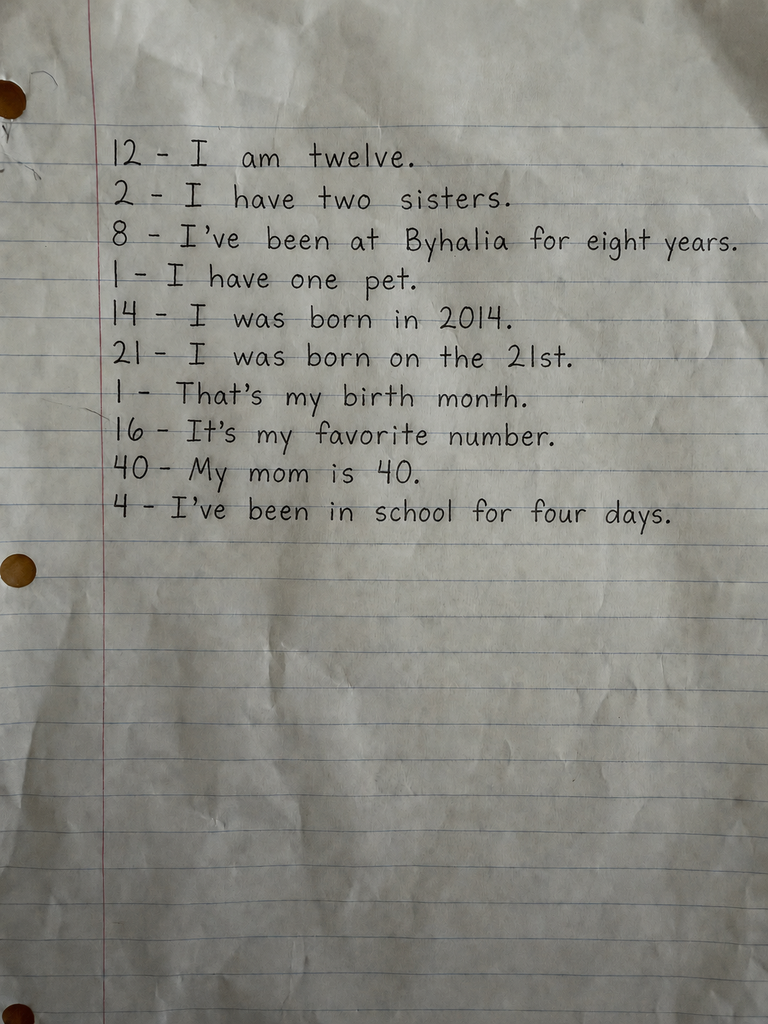 12 - I am twelve.
2 - I have two sisters.
8 - I've been at Byhalia for eight years.
1 - I have one pet.
14 - I was born in 2014.
21 - I was born on the 21st.
1 - That's my birth month.
16 - It's my favorite number.
40 - My mom is 40.
4 - I've been in school for four days.